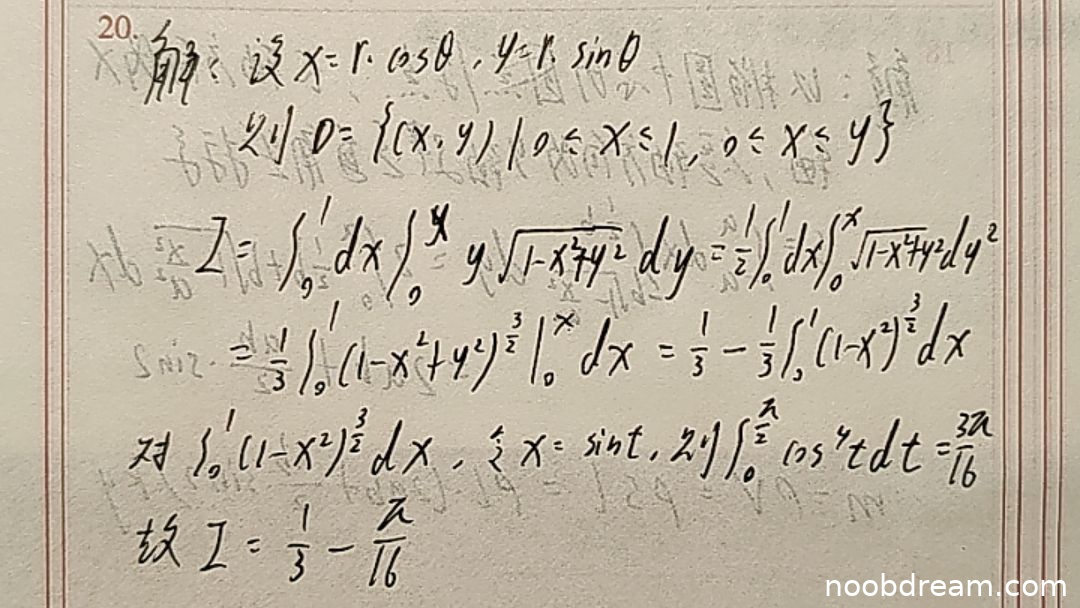 20. 解: 设 x=r·cosθ, y=r·sinθ
则 D={(x,y)|0≤x≤1, 0≤x≤y}
I=∫₀¹dx∫₀^y y√(1-x²+y²) dy = 1/2∫₀¹dx∫₀^x √(1-x²+y²) dy²
= 1/3∫₀¹(1-x²+y²)^(3/2)|₀^x dx = 1/3 - 1/3∫₀¹(1-x²)^(3/2)dx
对∫₀¹(1-x²)^(3/2)dx, 令x=sint, 则∫₀^(π/2) cos⁴tdt=3π/16
故 I = 1/3 - π/16
noobdream.com